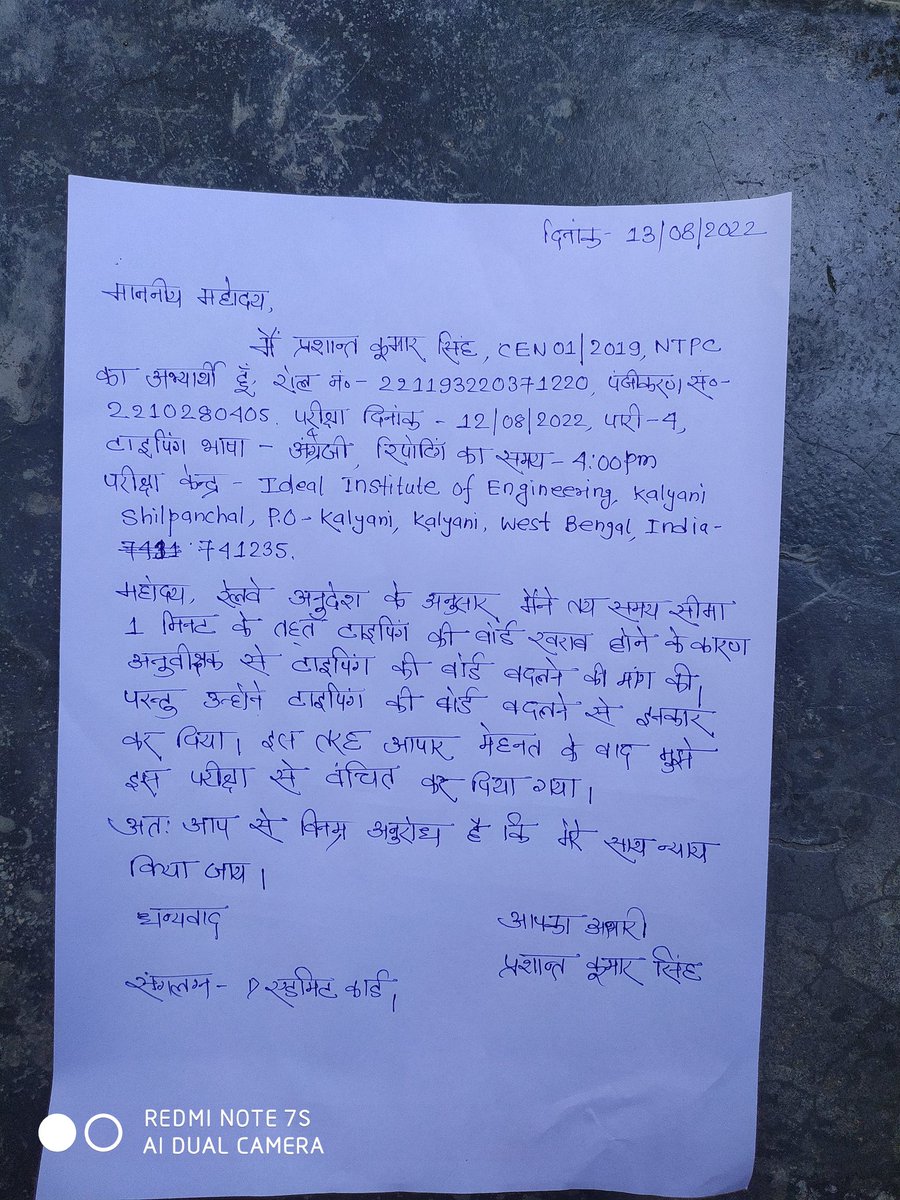 दिनांक- 13/08/2022
माननीय महोदय,
मैं प्रशान्त कुमार सिंह, CEN 01/2019, NTPC
का अभ्यार्थी हूँ, रोल नं०- 221193220371220, पंजीकरण सं०-
2210280405. परीक्षा दिनांक - 12/08/2022, पारी-4,
टाइपिंग भाषा - अंग्रेजी, रिपोर्टिंग का समय- 4:00pm
परीक्षा केन्द्र - Ideal Institute of Engineering, Kalyani
Shilpanchal, P.O- Kalyani, Kalyani, West Bengal, India-
741235.
महोदय, रेलवे अनुदेश के अनुसार मैंने तय समय सीमा
1 मिनट के तहत टाइपिंग की बोर्ड खराब होने के कारण
अनुवीक्षक से टाइपिंग की बोर्ड बदलने की मांग की।
परन्तु उन्होंने टाइपिंग की बोर्ड बदलने से इनकार
कर दिया। इस तरह आपार मेहनत के बाद मुझे
इस परीक्षा से वंचित कर दिया गया।
अतः आप से विनम्र अनुरोध है कि मेरे साथ न्याय
किया जाय।
धन्यवाद
आपका
प्रशान्त कुमार सिंह
संगलग्न - एडमिट कार्ड।
REDMI NOTE 7S
AI DUAL CAMERA